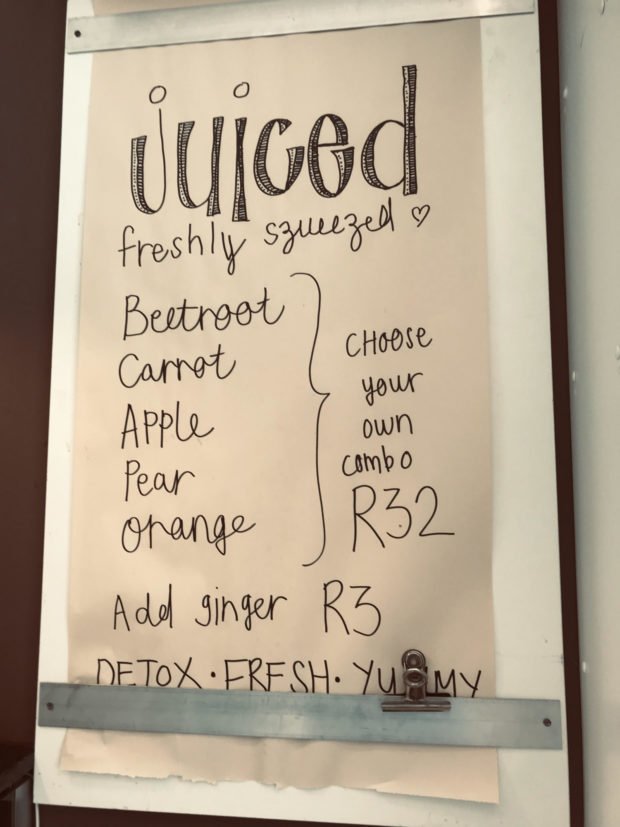 juiced
freshly szueezed ♡
Beetroot
Carrot
Apple
Pear
orange
CHOOSE
your
own
combo
R32
Add ginger R3
DETOX · FRESH · YUMMY